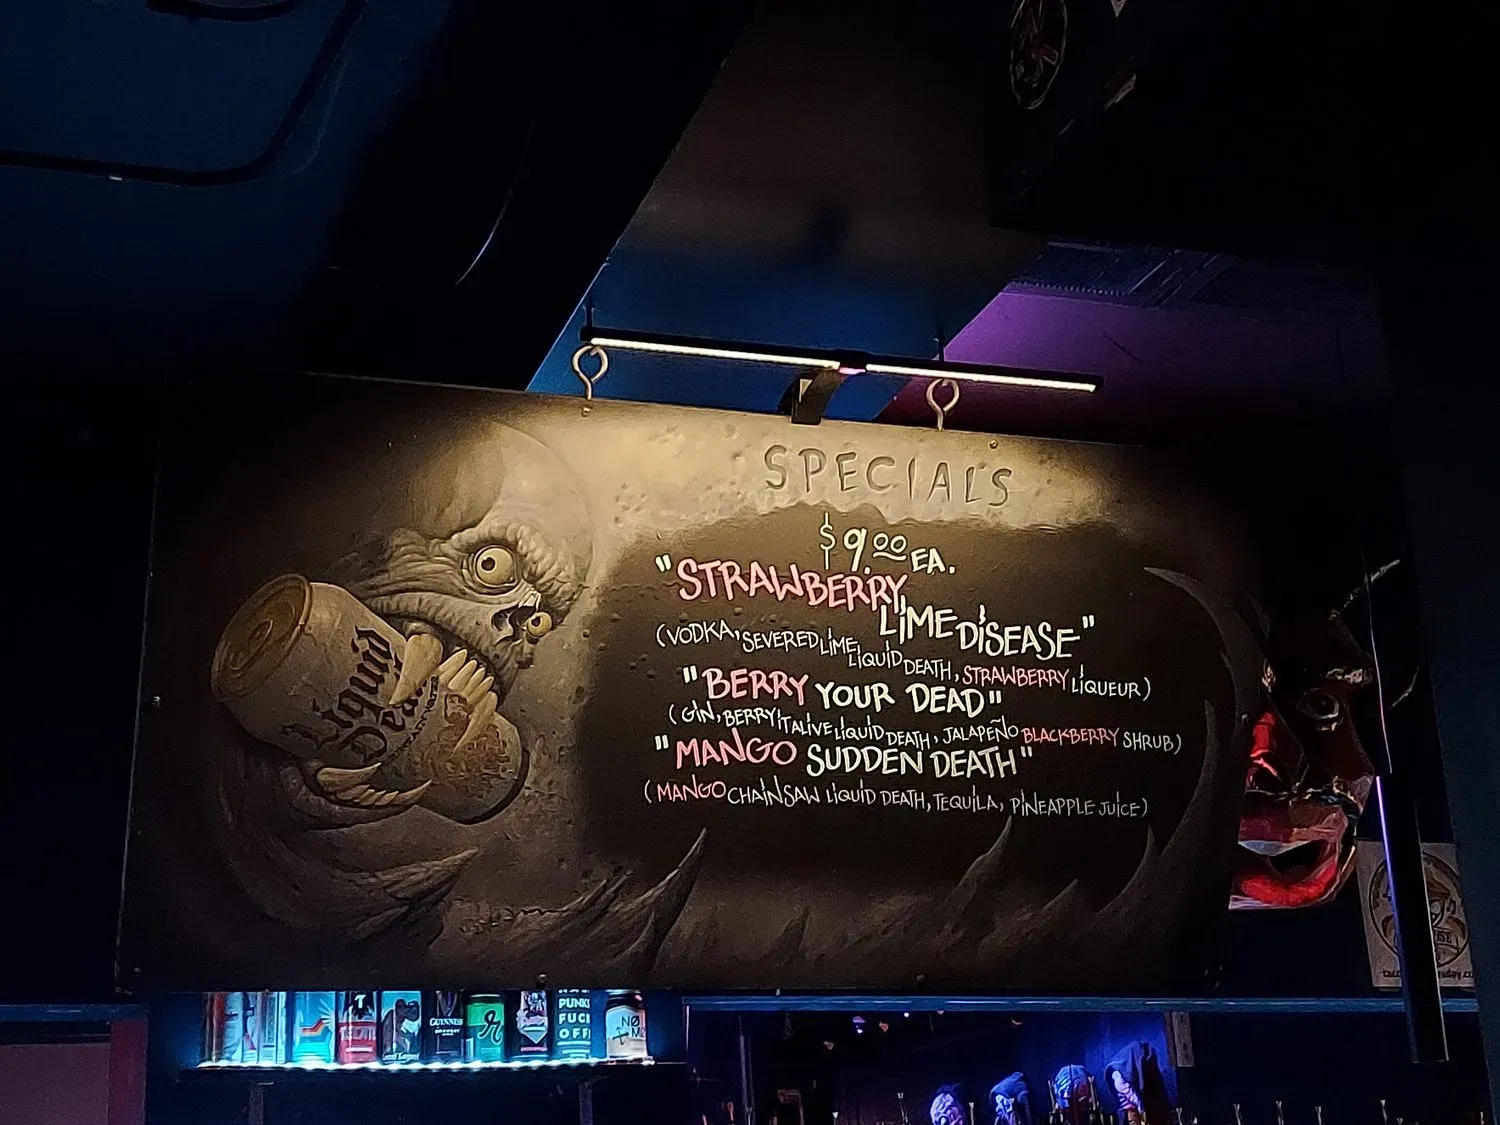 SPECIALS
$9.00 EA.
"STRAWBERRY LIME DISEASE"
(VODKA, SEVERED LIME LIQUID DEATH, STRAWBERRY LIQUEUR)
"BERRY YOUR DEAD"
(GIN, BERRY IT ALIVE LIQUID DEATH, JALAPEÑO BLACKBERRY SHRUB)
"MANGO SUDDEN DEATH"
(MANGO CHAINSAW LIQUID DEATH, TEQUILA, PINEAPPLE JUICE)
Liquid
Death
GUINNESS
PUNKS
FUCK
OFF
NØ